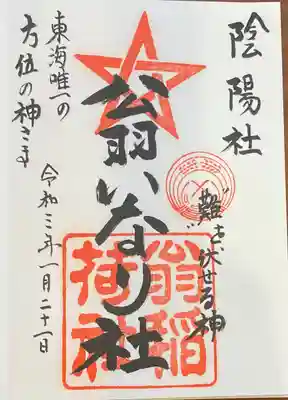 陰陽社
"難"を伏せる神
翁いなり社
翁稲荷社
東海唯一の
方位の神さま
令和三年一月二十一日